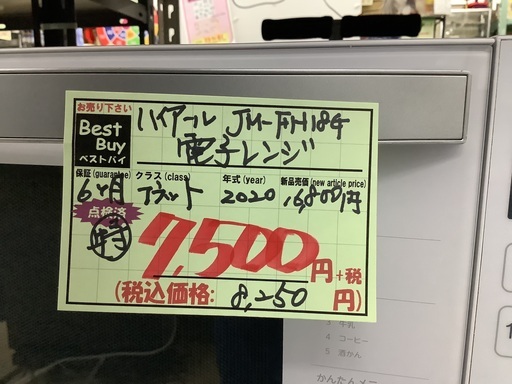 お売り下さい
Best Buy
ベストバイ
ハイアール JM-FH18G
電子レンジ
保証(guarantee) クラス(class) 年式(year) 新品売価(new article price)
6ヶ月 2020 16,800円
点検済
特
7,500円+税
(税込価格: 8,250円)
3 牛乳
4 コーヒー
5 酒かん
かんたんメ